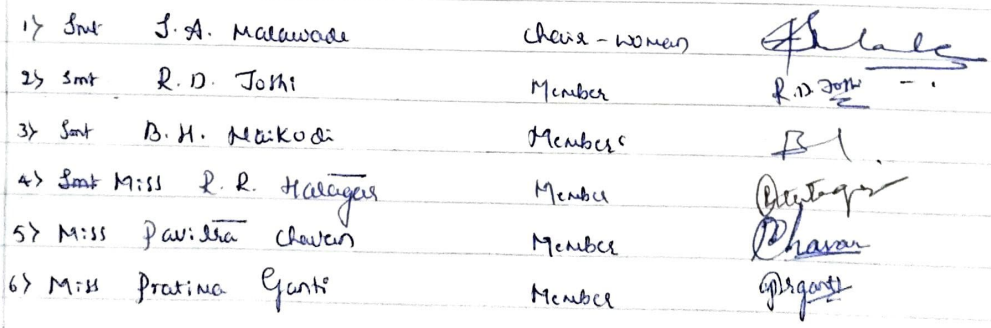 1) Smt S. A. Malawade Chair-woman
2) Smt R. D. Joshi Member R.D. Joshi
3) Smt B. H. Naikodi Member
4) Miss R. R. Halagar Member
5) Miss Pavitra Chavan Member Chavan
6) Miss Pratima Ganti Member Prganti